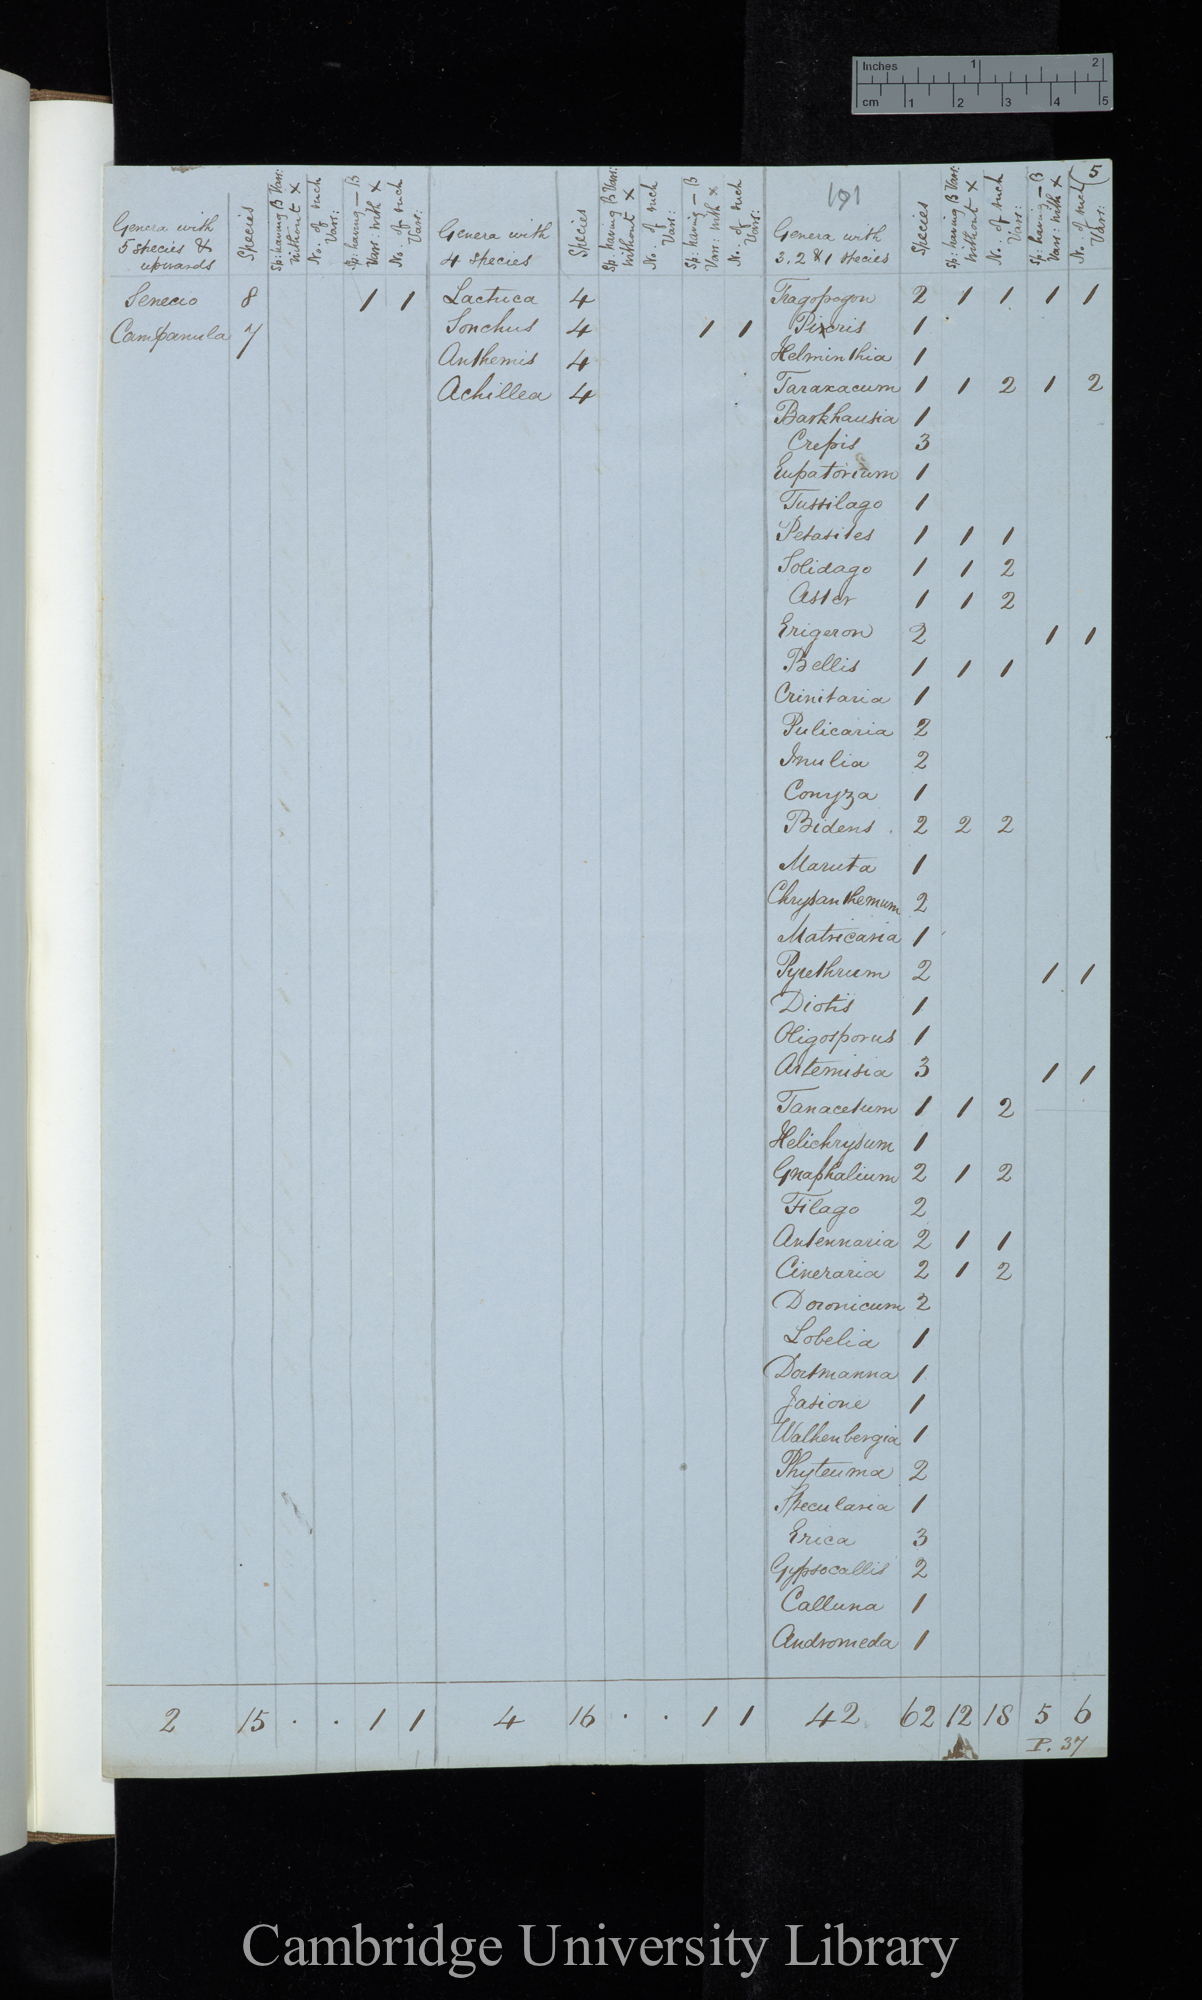 Inches 1 2
cm 1 2 3 4 5
191
(5
Genera with 5 species & upwards | Species | Sp: having β Vars: without × | No. of such Vars: | Sp: having — β Vars: with × | No. of such Vars: | Genera with 4 species | Species | Sp: having β Vars: without × | No. of such Vars: | Sp: having — β Vars: with × | No. of such Vars: | Genera with 3, 2 & 1 species | Species | Sp: having β Vars: without × | No. of such Vars: | Sp: having — β Vars: with × | No. of such Vars:
Senecio 8 1 1 Lactuca 4 Tragopogon 2 1 1 1 1
Campanula 7 Sonchus 4 1 1 Picris 1
Anthemis 4 Helminthia 1
Achillea 4 Taraxacum 1 1 2 1 2
Barkhausia 1
Crepis 3
Eupatorium 1
Tussilago 1
Petasites 1 1 1
Solidago 1 1 2
Aster 1 1 2
Erigeron 2 1 1
Bellis 1 1 1
Crinitaria 1
Pulicaria 2
Inulia 2
Conyza 1
Bidens . 2 2 2
Maruta 1
Chrysanthemum 2
Matricaria 1
Pyrethrum 2 1 1
Diotis 1
Oligosporus 1
Artemisia 3 1 1
Tanacetum 1 1 2
Helichrysum 1
Gnaphalium 2 1 2
Filago 2
Antennaria 2 1 1
Cineraria 2 1 2
Doronicum 2
Lobelia 1
Dortmanna 1
Jasione 1
Walhenbergia 1
Phyteuma 2
Specularia 1
Erica 3
Gypsocallis 2
Calluna 1
Andromeda 1
2 15 . . 1 1 4 16 . . 1 1 42 62 12 18 5 6
P. 37
Cambridge University Library